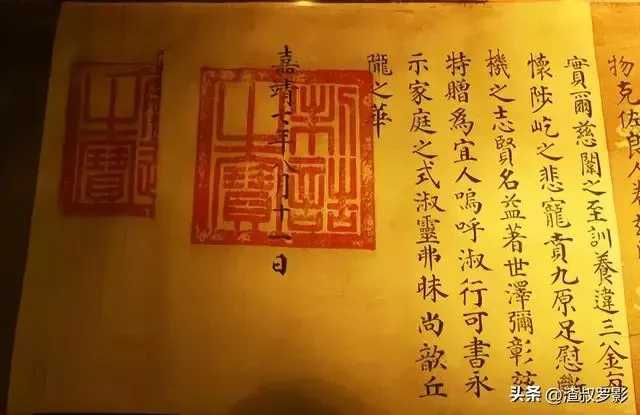 物克佐郎人
實爾慈闈之至訓養違三釜每
懷陟屺之悲寵賁九原足慰斷
機之志賢名益著世澤彌彰茲
特贈為宜人嗚呼淑行可書永
示家庭之式淑靈弗昧尚歆丘
隴之華
嘉靖七年八月十一日
制誥之寶
之寶
头条 @渣叔罗影